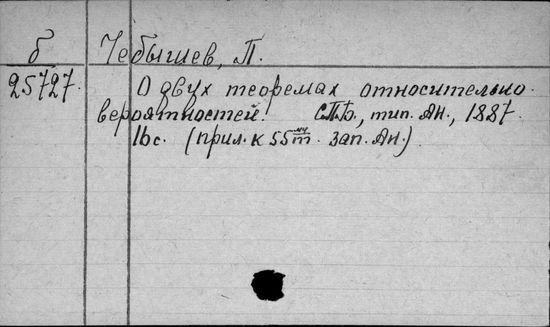 б Чебышев, П.
25727. О двух теоремах относительно
вероятностей. СПБ., тип. АН., 1887.
16 с. (прил. к 55му т. зап. АН.)